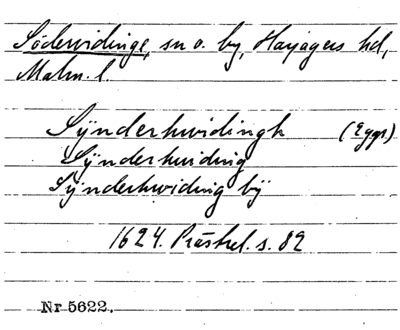 Södervidinge, sn o. by, Harjagers hd,
Malm. l.
Sÿnderhwidingh (Eggr)
Sÿnderhuiding
Sÿnderhwiding bÿ
1624. Präsrel. s. 82
Nr 5622.